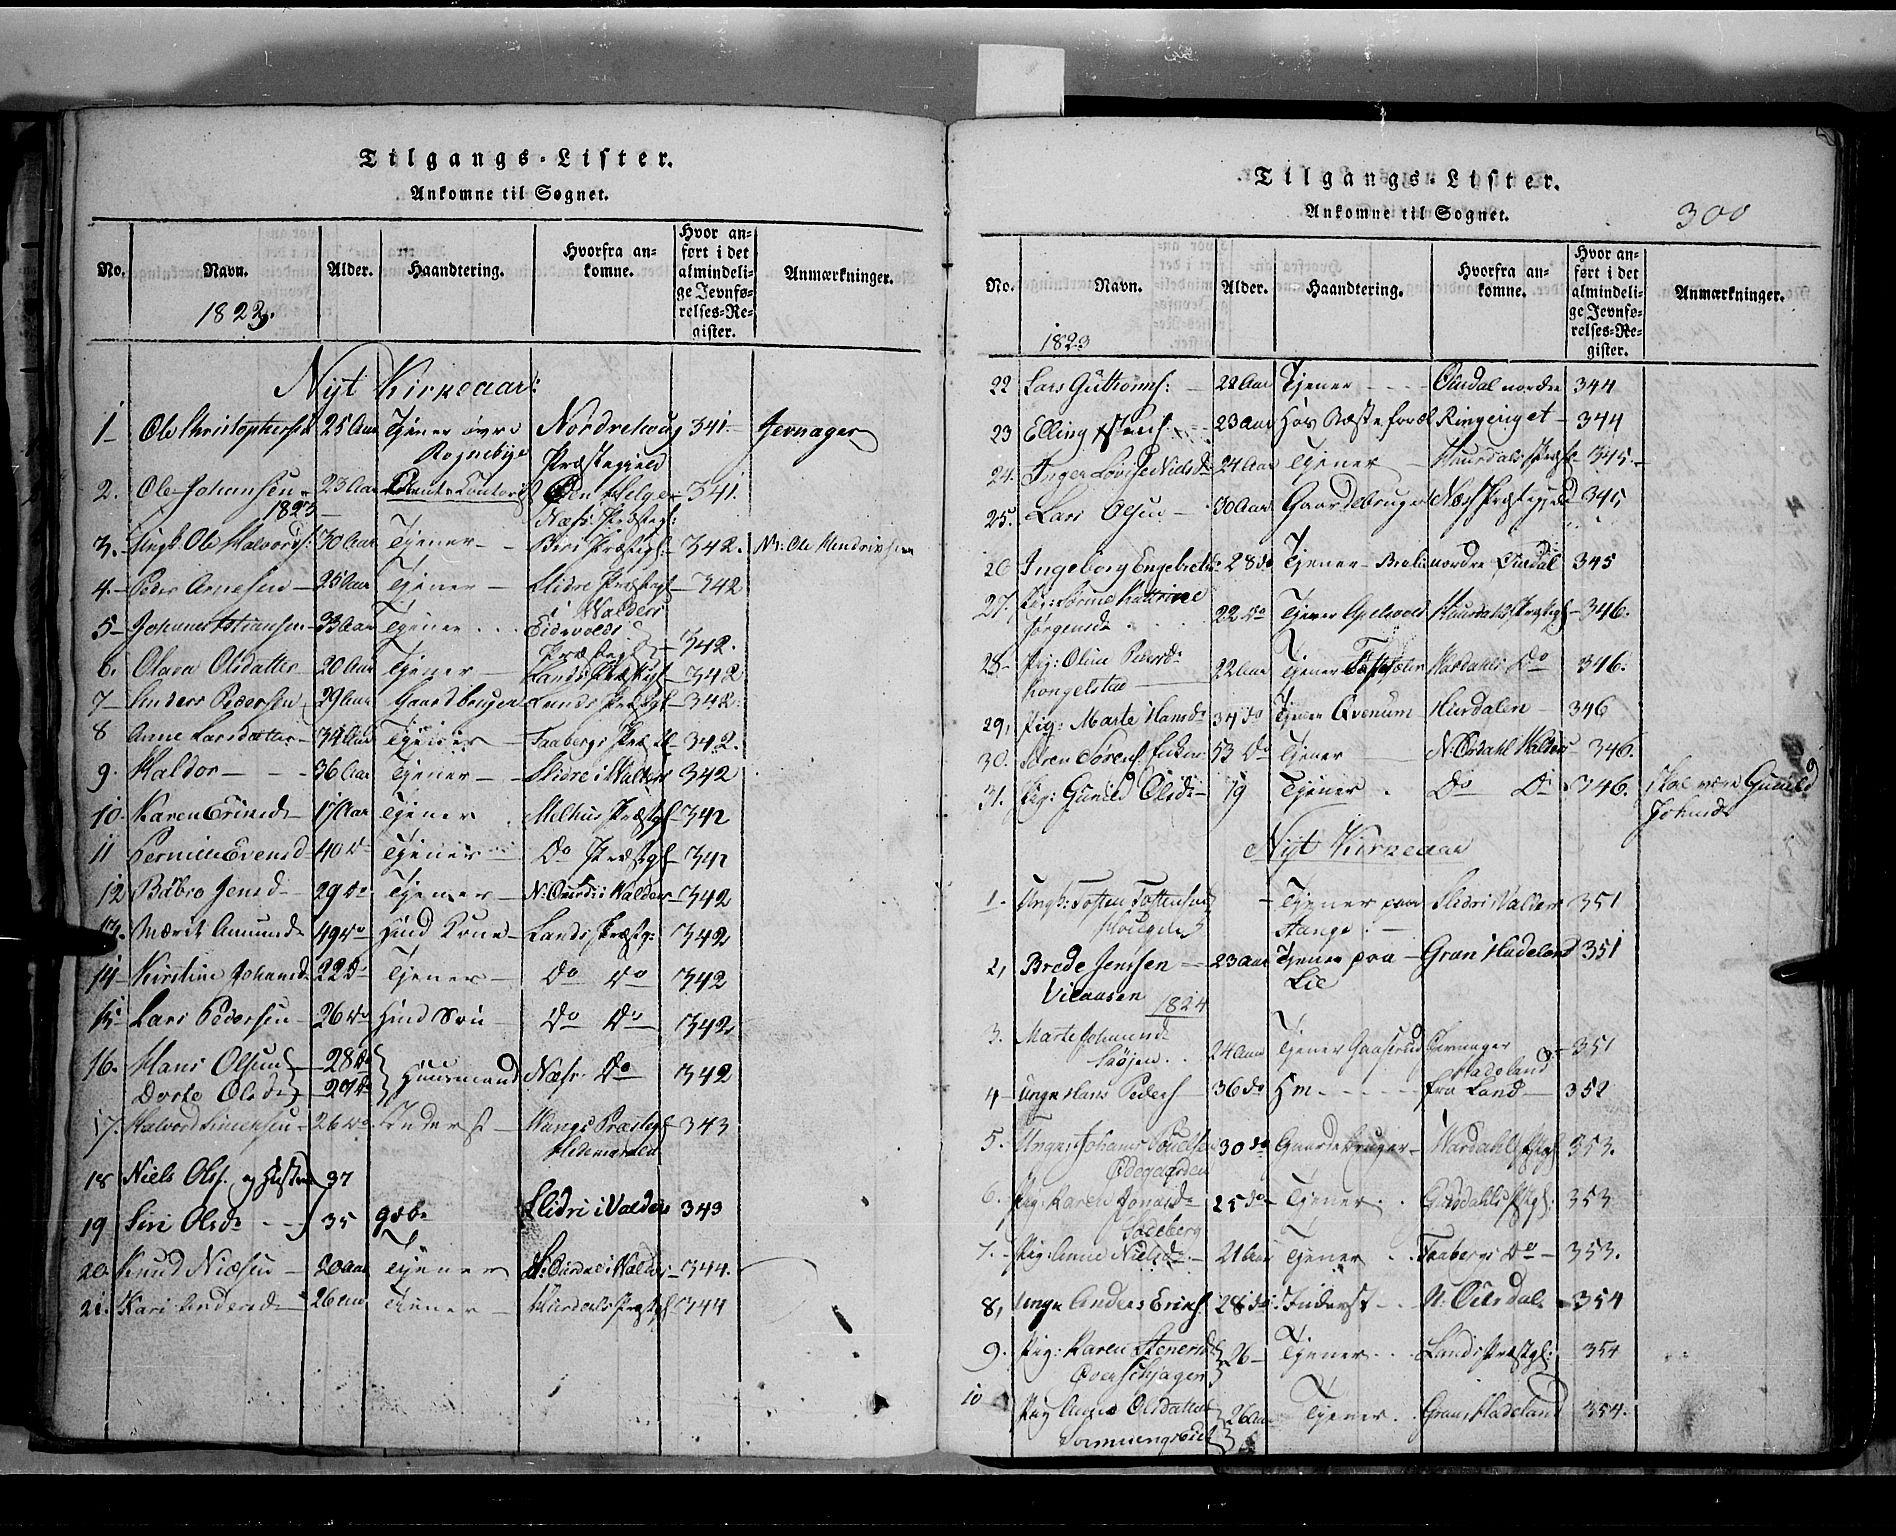 Tilgangs-Lister.
Ankomne til Sognet.
No. Navn. Alder. Haandtering. Hvorfra ankomne. Hvor anført i det almindelige Jevnførelses-Register. Anmærkninger.
1822.
Nyt Kirkeaar:
1 Ole Christophersen 25 Aar Tjener øvre Rognebye Nordrehoug Præstegield 341. Jevnager
2. Ole Johansen 23 Aar 341.
1823
3. Ungk. Ole Halvors: 30 Aar Tjener Biri Præstegl: 342. N: Ole Hendrichsen
4. Peder Arnesen 25 Aar Tjener Slidre Præstegl Valders 342
5 Johannes 33 Aar Tjener Eidsvolds Præstegl 342.
6. Olava Olsdatter 20 Aar Tjener Lands Præstegl 342
7 Anders Pedersen 29 Aar Gaardbruger Lands Præstegl 342.
8 Anne Larsdatter 34 Aar Tjener Faabergs Præstegl 342.
9. Haldor 36 Aar Tjener Slidre i Valders 342
10. Karen 17 Aar Tjener Melhus Præstgl 342
11 Pernille Evensd 40 Do Tjener Do Præstgl 342
12 Bibro Jensd 29 Do Tjener N: Ourdal i Valders 342
13. Marit Amunds 49 Do Hind Kone Lands Præstg: 342
14 Kirstine Johansd 22 D Tjener Do Do 342
15 Lars Pedersen 26 Do Hind Søn Do Do 342
16. Hans Olsen 28 Do
Dorte Olsd 27 Do Huusmand Næss Do 342
17. Halvord Simensen 26 Do Inderst Vangs Præstegl Hedemarken 343
18 Niels Ols. og Hustru 37
19 Siri Olsd 35 Slidri i Valders 343
20. Knud Nielsen 20 Aar Tjener N: Ourdal i Valders 344.
21. Kari Andersd 26 Aar Tjener Hurdals Præstgl 344
Tilgangs-Lister.
Ankomne til Sognet.
300
No. Navn. Alder. Haandtering. Hvorfra ankomne. Hvor anført i det almindelige Jevnførelses-Register. Anmærkninger.
1823
22 Lars Guttorms: 28 Aar Tjener Ourdal nordre 344
23 Elling 23 Aar Ringeriget 344
24. Inger Nielsd 24 Aar Tjener Huurdals Præstgl 345.
25. Lars Olsen 30 Aar Gaardebruger Næss Præstegjeld 345
26 Ingeborg Engebretsd 28 do Tjener nordre Ourdal 345
27. Pig: Sørine Kattrine Jørgensd 22 Do Tjener Huurdahl Præstgl 346.
28 Pig: Oline Pedersd 22 Aar Tjener Vardahls Do 346.
29, Pig: Marte Hansd 34 do Tjener Qvenum Hurdalen 346
30. Søren Sørens 53 Do Tjener N. Ordahl Valders 346.
31. Pig: Gunild Olsd 19 Tjener Do Do 346. skal være Gunild Johnsd
Nyt Kirkeaar
1. Ungk: Tosten Tostensen Tjener paa Stange Slidri Valders 351
2, Brede Jenssen 23 Aar Tjener paa Lie Gran Hadeland 351
1824
3. Marte Johansd 24 Aar Tjener Gaastrud Jevnager Hadeland 351
4 Ungk Hans Peders 36 do Hm. fra Land 352
5. Ungk: Johans Poulsen Ødegaarden 30 do Gaardebruger Vardahl Pstgl 353.
6. Pig: Karen Jonasd 25 do Tjener Pstgl: 353
7. Pig: Anne Nielsd 21 Aar Tjener Faabergs Do 353.
8, Ungk Anders Erichs 28 do Inderst N. Oursdal 354
9. Pig: Karen Stenersd 26 Tjener Lands Præstgl: 354
10 Pig Anne Olsdatter 26 Aar Tjener Grans Hadeland 354.